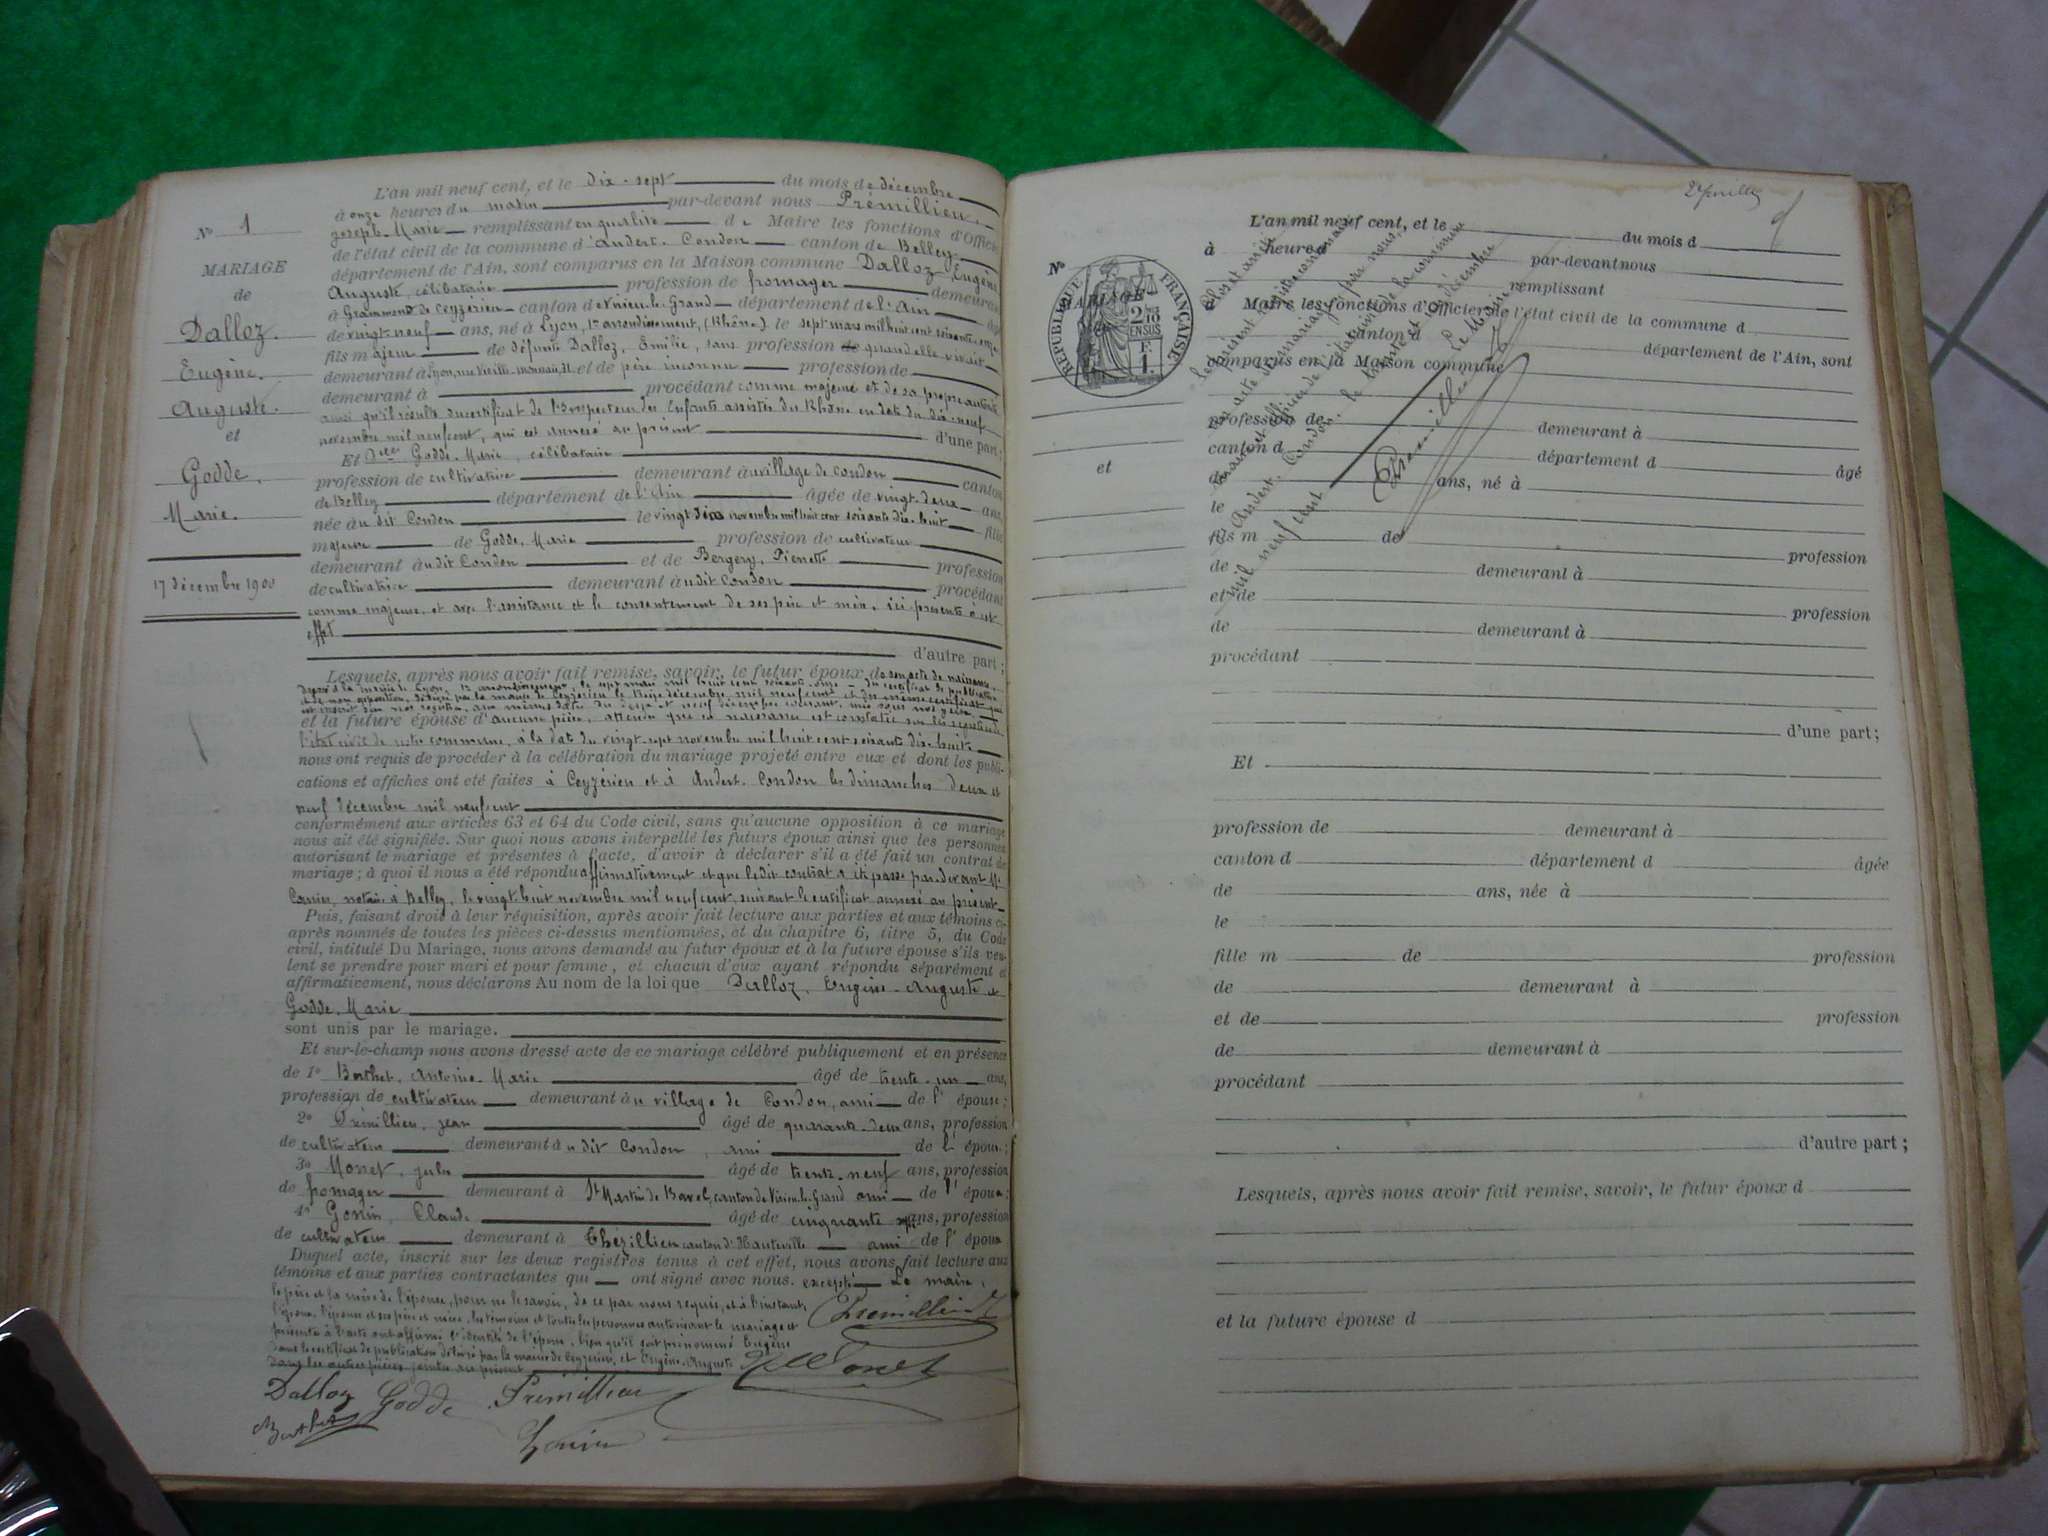 N° 1
MARIAGE
de
Dalloz.
Eugène.
Auguste.
et
Godde.
Marie.
17 décembre 1900
L'an mil neuf cent, et le dix-sept du mois de décembre
à onze heures du matin par-devant nous Prémillieu,
Joseph-Marie remplissant en qualité de Maire les fonctions d'Officier
de l'état civil de la commune d'Andert-Condon canton de Belley,
département de l'Ain, sont comparus en la Maison commune Dalloz Eugène
Auguste, célibataire profession de fromager demeurant
à Grammont de Ceyzérieu canton de Virieu-le-Grand département de l'Ain âgé
de vingt-neuf ans, né à Lyon, 1er arrondissement, (Rhône) le sept mars mil huit cent soixante onze
fils majeur de défunte Dalloz, Emilie, sans profession de quand elle vivait
demeurant à Lyon, rue Vieille-Monnaie, et de père inconnu profession de
demeurant à procédant comme majeur et de sa propre autorité
ainsi qu'il résulte du certificat de l'Inspecteur des Enfants assistés du Rhône en date du dix-neuf
novembre mil neuf cent, qui est annexé au présent d'une part;
Et Delle Godde Marie, célibataire
profession de cultivatrice demeurant au village de Condon canton
de Belley département de l'Ain âgée de vingt-deux ans,
née au dit Condon le vingt six novembre mil huit cent soixante dix-huit fille
majeure de Godde, Marie profession de cultivateur
demeurant audit Condon et de Bergery, Pierrette profession
de cultivatrice demeurant audit Condon procédant
comme majeure et avec l'assistance et le consentement de ses père et mère ici présents à cet
effet
d'autre part;
Lesquels, après nous avoir fait remise, savoir, le futur époux de son acte de naissance,
dressé à la mairie de Lyon, 1er arrondissement, le sept mars mil huit cent soixante onze, du certificat de publication
et de non opposition, délivré par la mairie de Ceyzérieu le treize décembre mil neuf cent et du même certificat que
et la future épouse d'aucune pièce, attendu que sa naissance est constatée sur les registres de
l'état civil de notre commune, à la date du vingt-sept novembre mil huit cent soixante dix-huit
nous ont requis de procéder à la célébration du mariage projeté entre eux et dont les publi-
cations et affiches ont été faites à Ceyzérieu et à Andert-Condon les dimanches deux et
neuf décembre mil neuf cent
conformément aux articles 63 et 64 du Code civil, sans qu'aucune opposition à ce mariage
nous ait été signifiée. Sur quoi nous avons interpellé les futurs époux ainsi que les personnes
autorisant le mariage et présentes à l'acte, d'avoir à déclarer s'il a été fait un contrat de
mariage; à quoi il nous a été répondu affirmativement et que ledit contrat a été passé par-devant Me
notaire à Belley, le vingt-huit novembre mil neuf cent, suivant le certificat annexé au présent
Puis, faisant droit à leur réquisition, après avoir fait lecture aux parties et aux témoins ci-
après nommés de toutes les pièces ci-dessus mentionnées, et du chapitre 6, titre 5, du Code
civil, intitulé Du Mariage, nous avons demandé au futur époux et à la future épouse s'ils veu-
lent se prendre pour mari et pour femme, et chacun d'eux ayant répondu séparément et
affirmativement, nous déclarons Au nom de la loi que Dalloz, Eugène-Auguste et
Godde, Marie
sont unis par le mariage.
Et sur-le-champ nous avons dressé acte de ce mariage célébré publiquement et en présence
de 1° Berthet, Antoine-Marie âgé de trente-un ans,
profession de cultivateur demeurant au village de Condon, ami de l'épouse;
2° Prémillieu, Jean âgé de quarante-deux ans, profession
de cultivateur demeurant audit Condon, ami de l'époux;
3° Monet, Jules âgé de trente-neuf ans, profession
de fromager demeurant à St Martin de Bavel, canton de Virieu-le-Grand ami de l'époux;
4° Gonin, Claude âgé de cinquante ans, profession
de cultivateur demeurant à Thézillieu canton d'Hauteville ami de l'époux
Duquel acte, inscrit sur les deux registres tenus à cet effet, nous avons fait lecture aux
témoins et aux parties contractantes qui ont signé avec nous. excepté Le maire,
le père et la mère de l'épouse, pour ne le savoir, de ce par nous requis, et à l'instant,
l'époux, l'épouse et ses père et mère, les témoins et toutes les personnes autorisant le mariage et
présentes à l'acte ont affirmé l'identité de l'époux, bien qu'il soit prénommé Eugène
dans le certificat de publication délivré par la mairie de Ceyzérieu, et Eugène-Auguste
dans les autres pièces jointes au présent
Prémillieu
Monet
Dalloz Godde Prémillieu
Berthet
Gonin
N°
MARIAGE
RÉPUBLIQUE FRANÇAISE
2/10 EN SUS
F.
1.
et
L'an mil neuf cent, et le du mois d
à heures par-devant nous
remplissant
Maire les fonctions d'Officier de l'état civil de la commune d
canton d département de l'Ain, sont
comparus en la Maison commune
profession de demeurant à
canton d département d âgé
de ans, né à
le
fils m de
de demeurant à profession
et de
de demeurant à profession
procédant
d'une part;
Et
profession de demeurant à
canton d département d âgée
de ans, née à
le
fille m de profession
de demeurant à
et de profession
de demeurant à
procédant
d'autre part;
Lesquels, après nous avoir fait remise, savoir, le futur époux d
et la future épouse d
Clos et arrêté
le présent registre contenant
un acte de mariage par nous,
maire et officier de l'état civil de la commune
d'Andert-Condon, le trente et un décembre
mil neuf cent Le Maire
Prémillieu